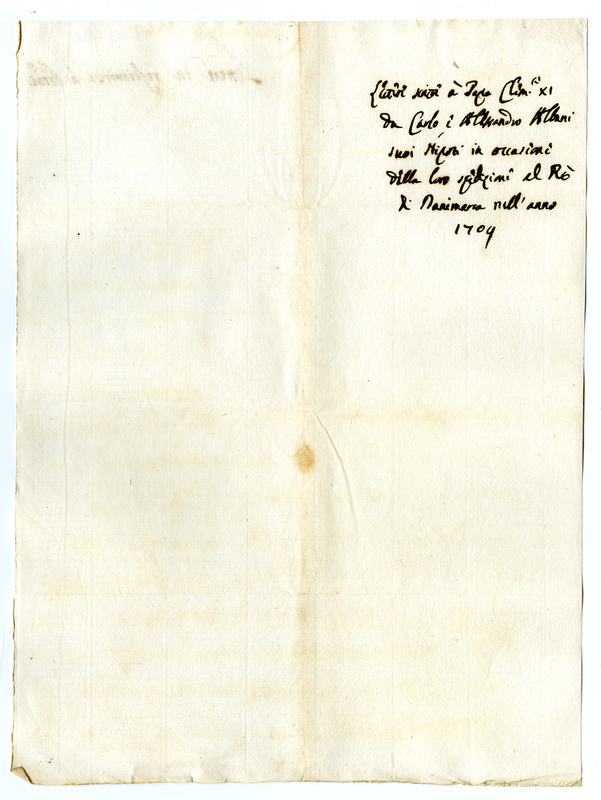 Lettere scritte à Papa Clem.e XI
da Carlo e Alessandro Albani
suoi Nipoti in occasione
della loro spedizione al Rè
di Danimarca nell'anno
1709